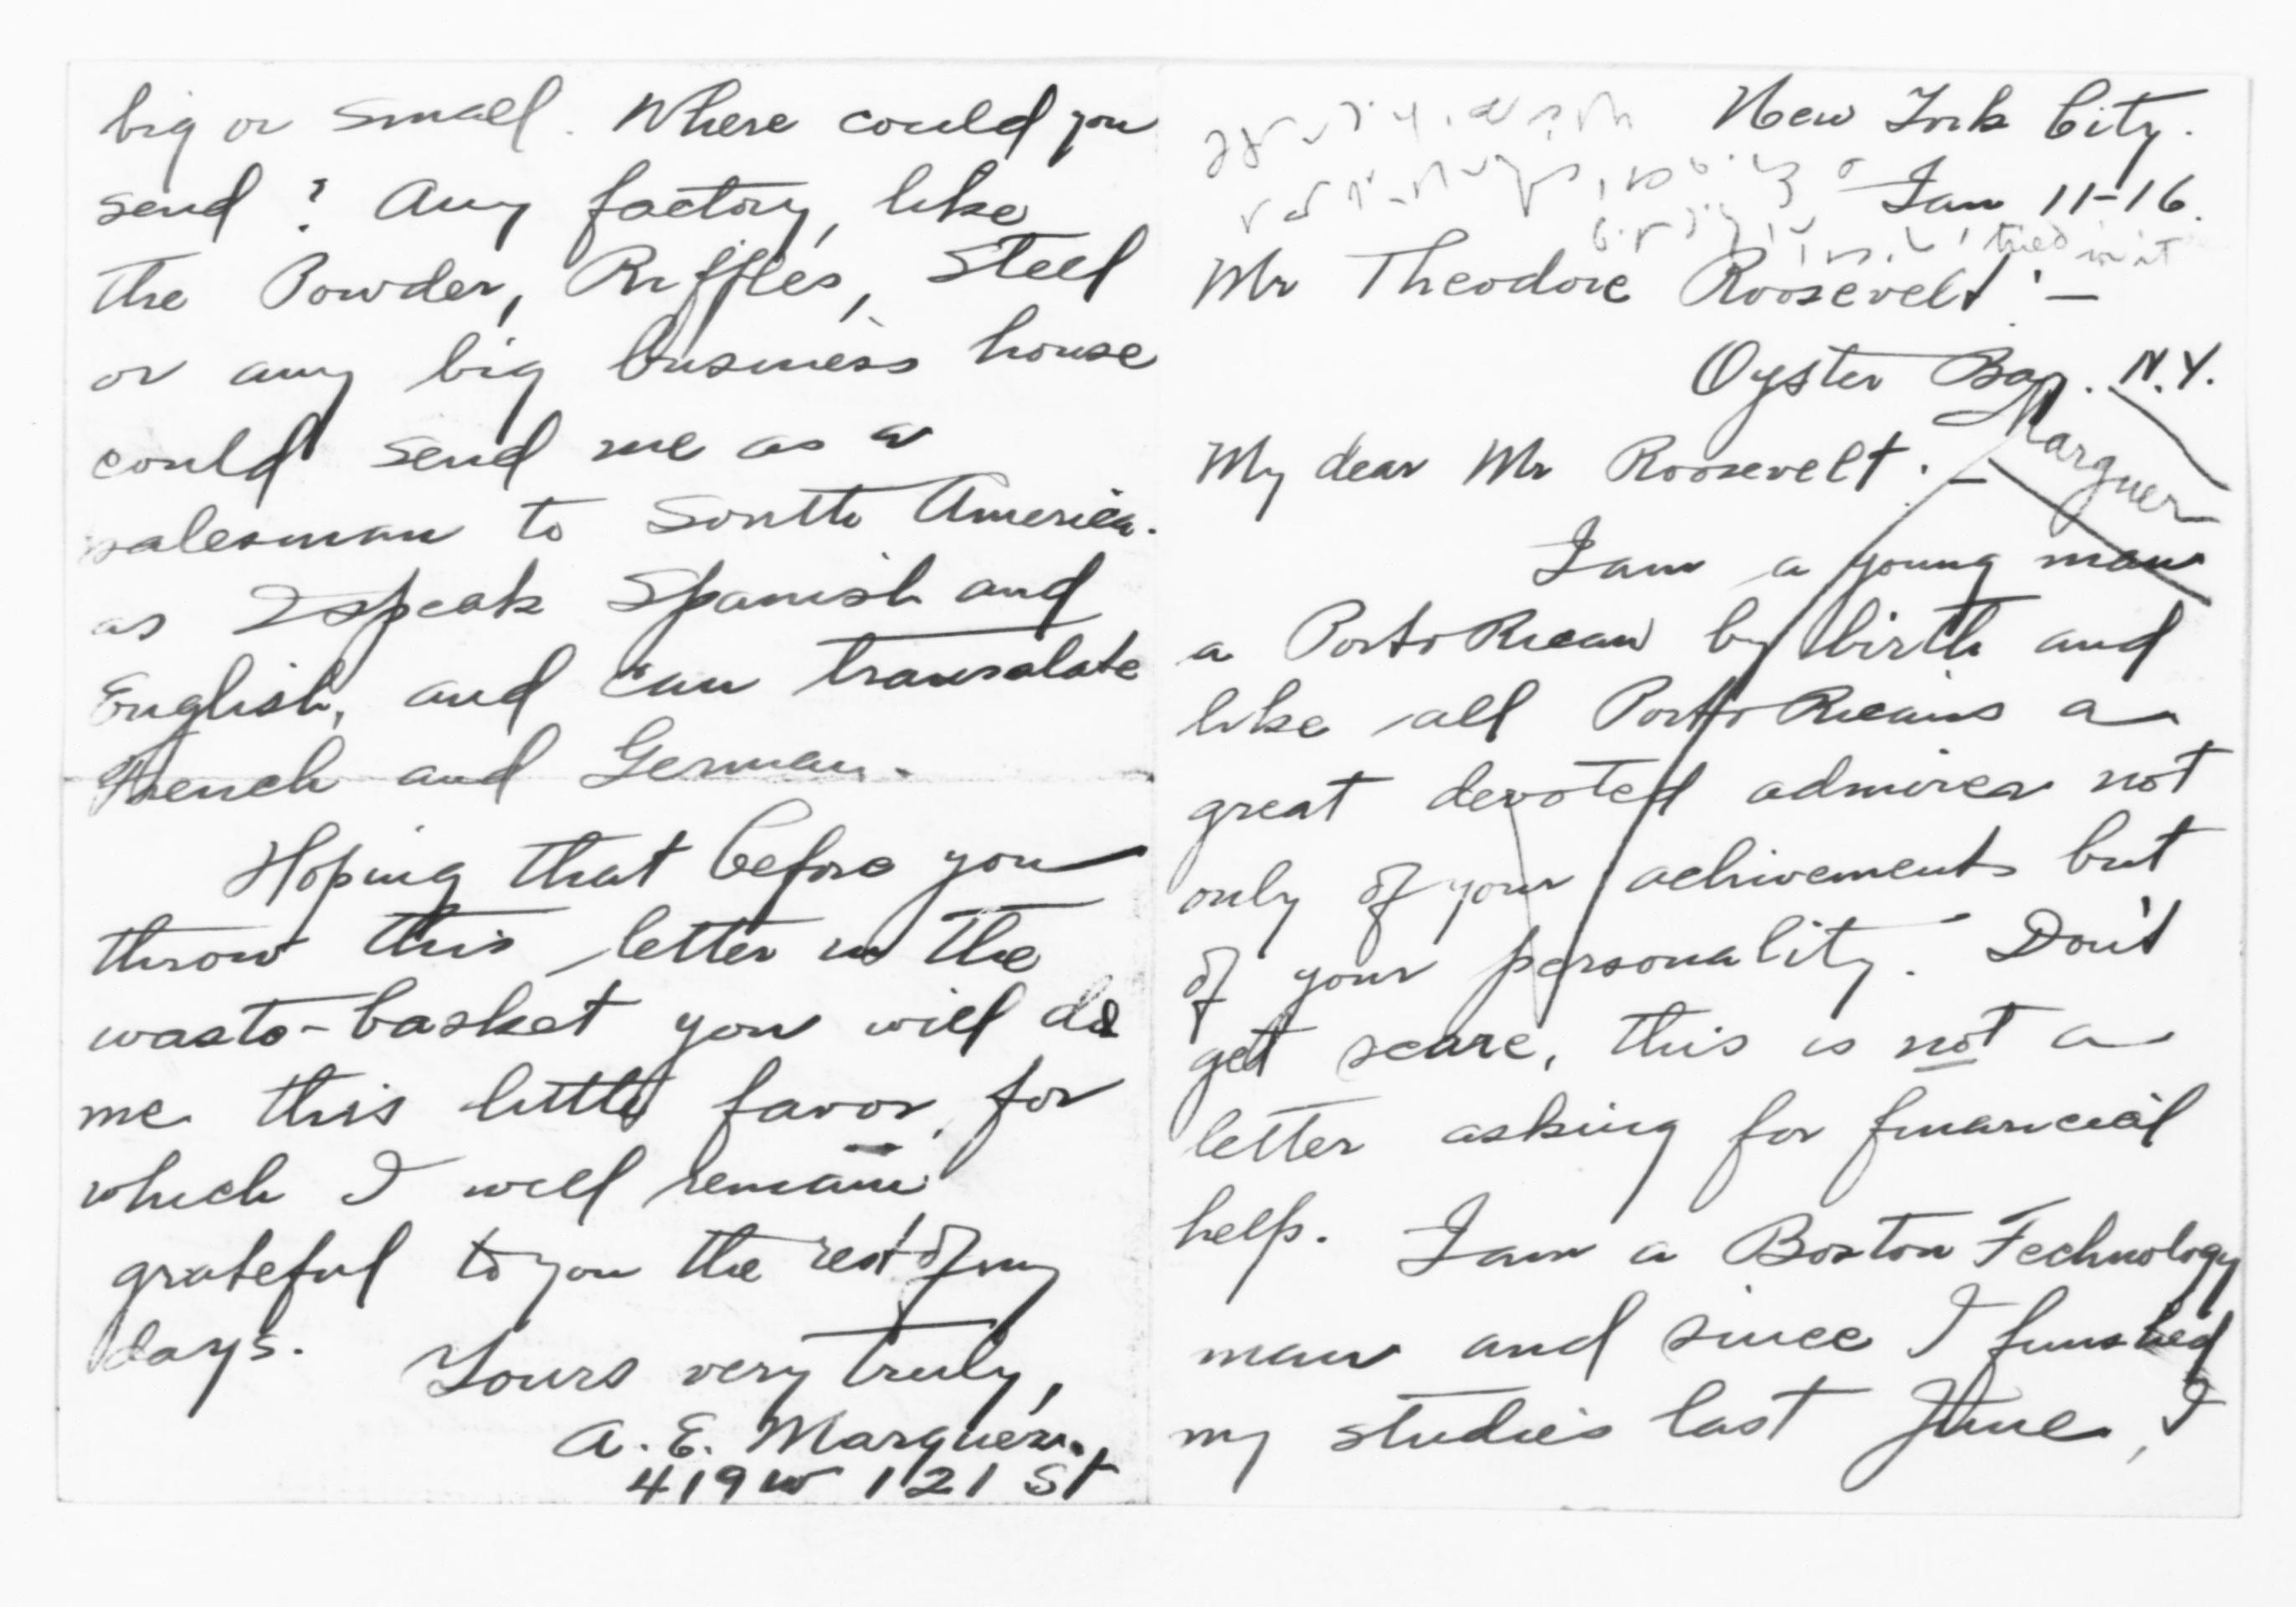 New York City.
Jan 11-16.
tried in it
Mr Theodore Roosevelt:—
Oyster Bay. N.Y.
Marguer
My dear Mr Roosevelt:—
I am a young man
a Porto Rican by birth and
like all Porto Ricans a
great devoted admirer not
only of your achivements but
of your personality. Don't
get scare, this is not a
letter asking for financial
help. I am a Boston Technology
man and since I finished
my studies last June, I
big or small. Where could you
send? Any factory, like
the Powder, Riffles, Steel
or any big business house
could send me as a
salesman to South America.
as I speak Spanish and
English, and can transalate
French and German.
Hoping that before you
throw this letter in the
waste-basket you will do
me this little favor, for
which I will remain
grateful to you the rest of my
days.
Yours very truly,
A. E. Marguer
419 W 121 St